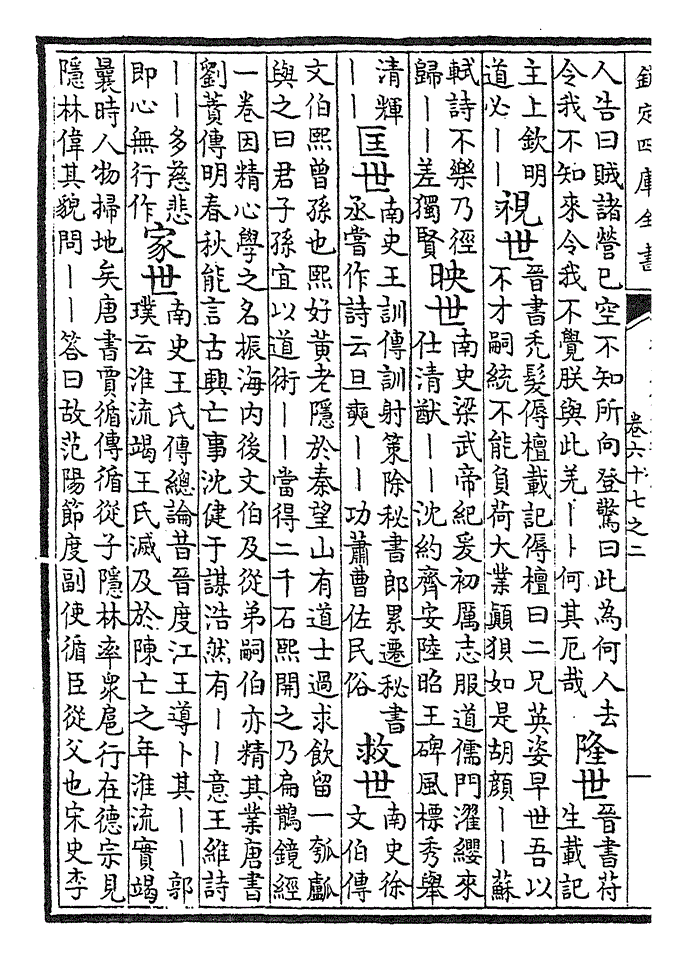 欽定四庫全書
卷六十七之二
人告曰賊諸營已空不知所向登驚曰此為何人去
令我不知來令我不覺朕與此羌丨丨何其厄哉
隆世
晉書苻
生載記
主上欽明
道必丨丨
視世
晉書禿髮傉檀載記傉檀曰二兄英姿早世吾以
不才嗣統不能負荷大業顛狽如是胡顏丨丨蘇
軾詩不樂乃徑
歸丨丨差獨賢
映世
南史梁武帝紀爰初厲志服道儒門濯纓來
仕清猷丨丨沈約齊安陸昭王碑風標秀舉
清輝
丨丨
匡世
南史王訓傳訓射策除秘書郎累遷秘書
丞嘗作詩云旦奭丨丨功蕭曹佐民俗
救世
南史徐
文伯傳
文伯熙曾孫也熙好黃老隱於秦望山有道士過求飲留一瓠
與之曰君子孫宜以道術丨丨當得二千石熙開之乃扁鵲鏡經
一卷因精心學之名振海内後文伯及從弟嗣伯亦精其業唐書
劉蕡傳明春秋能言古興亡事沈健于謀浩然有丨丨意王維詩
丨丨多慈悲
即心無行作
家世
南史王氏傳總論昔晉度江王導卜其丨丨郭
璞云淮流竭王氏滅及於陳亡之年淮流實竭
曩時人物掃地矣唐書賈循傳循從子隱林率衆扈行在德宗見
隱林偉其貌問丨丨答曰故范陽節度副使循臣從父也宋史李